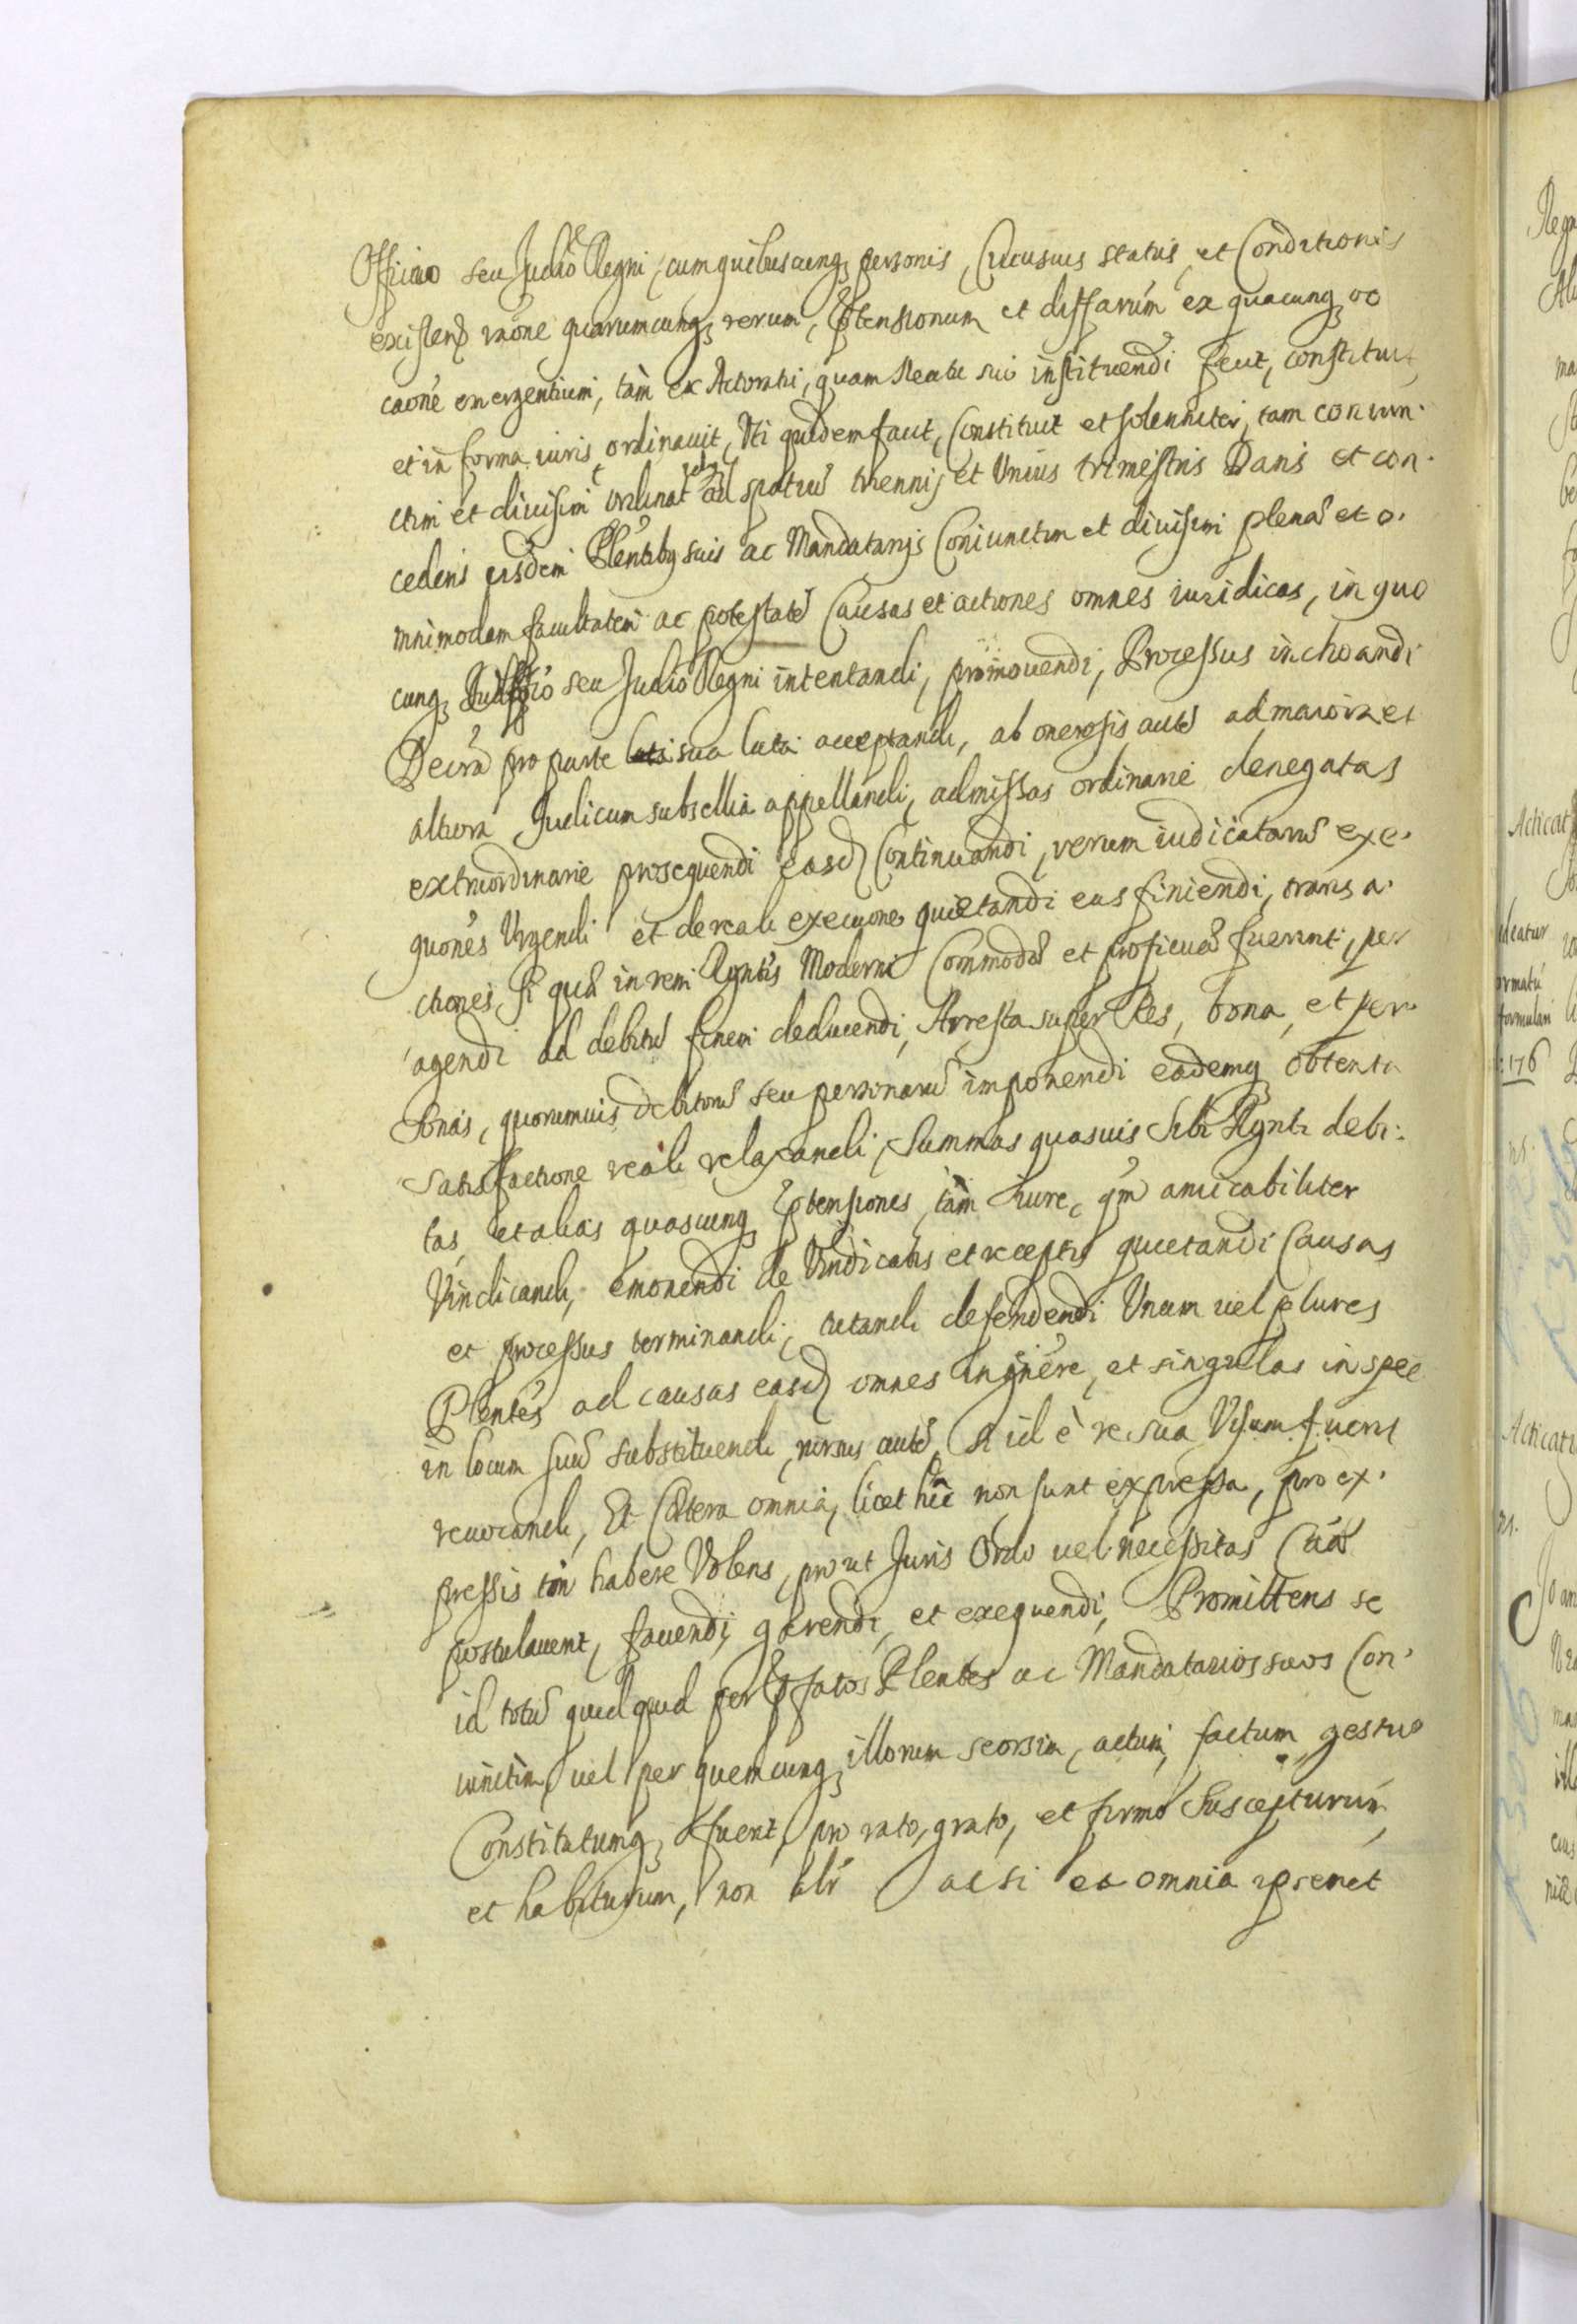 Officio seu Judio Regni, cum quibuscunq personis, Cuiusuis status, et Conditionis
existen rāone quarumcunq rerum, Ptensionum et differarum ex quacunq oc
caone emergentium, tam ex Actoratu, quam Reatu suo instituendi fecit, constituit
et in forma iuris ordinauit, Uti quidem facit, Constituit et solenniter, tam coniun
ctim et diuisim ordinat ad spatiū triennij et Unius trimestris Dans et con
cedens eisdem Plentibq suis ac Mandatarijs Coniunctim et diuisim plenā et o
mnimodam facultatem ac potestatē Causas et actiones omnes iuridicas, in quo
cunq seu Judio Regni intentandi, promouendi, Processus inchoandi
Decra pro parte sua lata acceptandi, ab onerosis autē ad maiora et
altiora Judicum subsellia appellandi, admissas ordinarie denegatas
extraordinarie prosequendi easd Continuandi, rerum iudicatarū exe
quones Urgendi et de reali execuone quietandi eas finiendi, transa
ctiones Si quā in rem Rgntis Moderni Commodā et proficuā fuerint, per
agendi ad debitū finem deducendi, Arresta super Res, bona, et per
sonas, quorumuis debitorū seu personarū imponendi eademq obtenta
satisfactione reali relaxandi, Summas quasuis Sibi Rgnti debi
tas et alias quascunq Ptensiones, tam iure, qm amicabiliter
Vindicandi, emonendi de Vindicatis et receptis quietandi Causas
et processus terminandi, tutandi defendendi Unum uel plures
Plentes ad causas easd omnes in gnere, et singulas in spee
in locum suū substituendi, rursus autē, si id è re sua Visum fuerit
reuocandi, Et Cætera omnia, licet hic non sunt expressa, pro ex
pressis tn habere Volens, prout Juris Ordo uel necessitas
postulauerit, faciendi, gerendi, et exequendi, Promittens se
id totū quidquid per Pfatos Plentes ac Mandatarios suos Con
iunctim, uel per quemcunq illorum seorsim, actum, factum, gestū
Constitutumq fuerit, pro rato, grato, et firmo Suscepturum,
et habiturum, non alr ac si ea omnia ipsemet